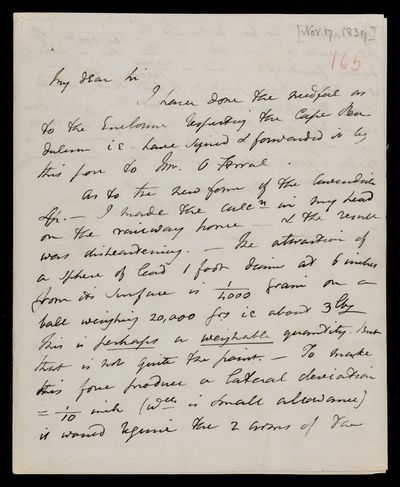 [Nov. 17. 1837]
165
My dear Sir
I have done the needful as
to the Enclosure respecting the Cape Pen
dulum i.e. have signed & forwarded it by
this post to Mr.
As to the new form of the Cavendish
App. — I made the calcn in my head
on the railway home — & the result
was disheartening. — The attraction of
a sphere of lead 1 foot diam at 6 inches
from its surface is 1/4000 grain on a
ball weighing 20,000 grs ie about 3 lbs
This is perhaps a weighable quantity. But
that is not quite the point. — To make
this force produce a lateral deviation
= 1/10 inch (wch is small allowance)
it would require the 2 arms of the